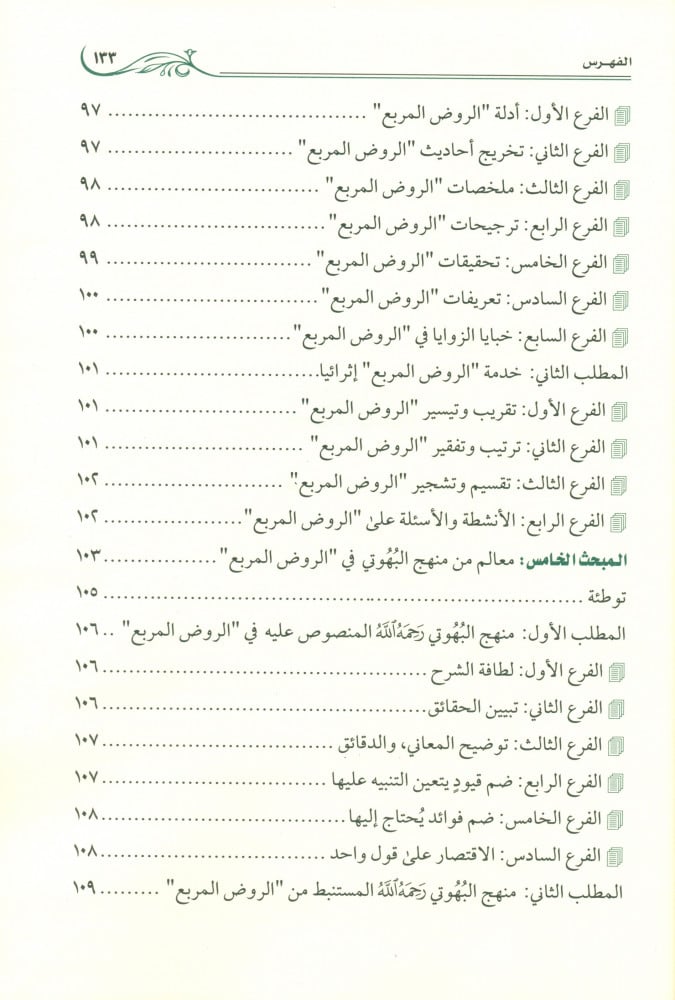 الفهرس ١٣٣
الفرع الأول: أدلة "الروض المربع" ........................................ ٩٧
الفرع الثاني: تخريج أحاديث "الروض المربع" ............................. ٩٧
الفرع الثالث: ملخصات "الروض المربع" ................................. ٩٨
الفرع الرابع: ترجيحات "الروض المربع" .................................. ٩٨
الفرع الخامس: تحقيقات "الروض المربع" ................................ ٩٩
الفرع السادس: تعريفات "الروض المربع" ................................. ١٠٠
الفرع السابع: خبايا الزوايا في "الروض المربع" ............................. ١٠٠
المطلب الثاني: خدمة "الروض المربع" إثرائيا ................................. ١٠١
الفرع الأول: تقريب وتيسير "الروض المربع" .............................. ١٠١
الفرع الثاني: ترتيب وتفقير "الروض المربع" ............................... ١٠١
الفرع الثالث: تقسيم وتشجير "الروض المربع" ............................ ١٠٢
الفرع الرابع: الأنشطة والأسئلة علىٰ "الروض المربع" ..................... ١٠٢
المبحث الخامس: معالم من منهج البُهُوتي في "الروض المربع" ................. ١٠٣
توطئة .......................................................................... ١٠٥
المطلب الأول: منهج البُهُوتي رَحِمَهُ ٱللَّهُ المنصوص عليه في "الروض المربع" .. ١٠٦
الفرع الأول: لطافة الشرح .................................................. ١٠٦
الفرع الثاني: تبيين الحقائق .................................................. ١٠٦
الفرع الثالث: توضيح المعاني، والدقائق .................................... ١٠٧
الفرع الرابع: ضم قيودٍ يتعين التنبيه عليها ................................... ١٠٧
الفرع الخامس: ضم فوائد يُحتاج إليها ...................................... ١٠٨
الفرع السادس: الاقتصار علىٰ قول واحد ................................... ١٠٨
المطلب الثاني: منهج البُهُوتي رَحِمَهُ ٱللَّهُ المستنبط من "الروض المربع" ......... ١٠٩